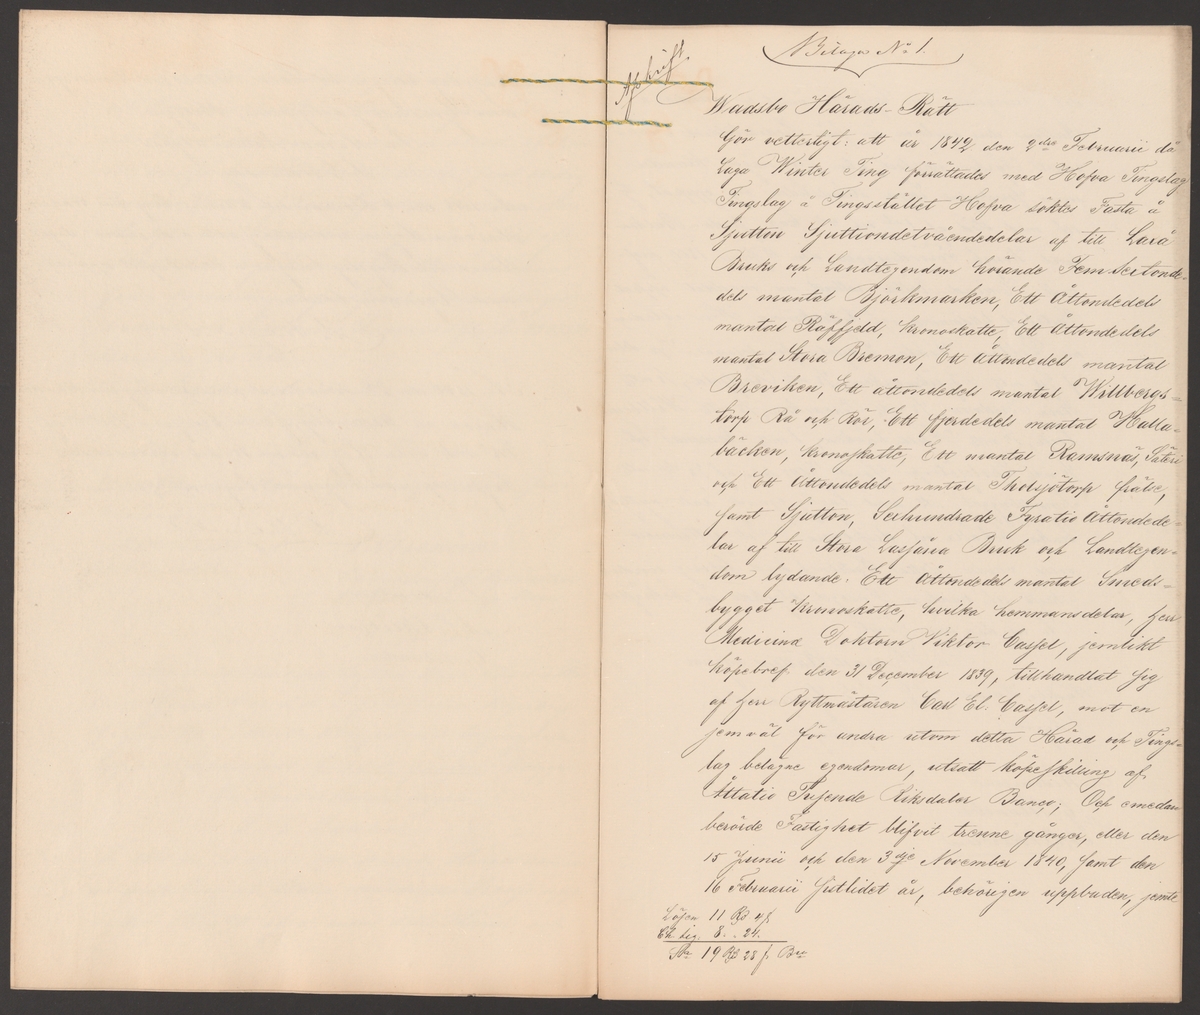 Bilaga No 1.
Afskrift
Wadsbo Härads-Rätt
Gör vetterligt: att år 1842 den 2dra Februarii då
Laga Winter Ting förrättades med Hofva Tingslag
Tingslag å Tingsstället Hofva söktes Fasta å
Sjutton Sjuttiondetvåendedelar af till Laxå
Bruks och Landtegendom hörande Fem Sextonde-
dels mantal Björkmarken, Ett Åttondedels
mantal Räffjeld, kronoskatte, Ett Åttondedels
mantal Stora Bremon, Ett Åttondedels mantal
Breviken, Ett åttondedels mantal Willbergs-
torp Rå och Rör, Ett fjerdedels mantal Halla-
bäcken, kronoskatte, Ett mantal Ramsnäs, Säteri
och Ett Åttondedels mantal Tholsjötorp frälse,
samt Sjutton, Sexhundrade Fyratio Åttondede-
lar af till Stora Lassåna Bruk och Landtegen-
dom lydande. Ett Åttondedels mantal Smeds-
bygget Kronoskatte, hvilka hemmansdelar, herr
Medicinæ Doktorn Viktor Cassel, jemlikt
köpebref den 31 December 1839, tillhandlat sig
af herr Ryttmästaren Carl El. Cassel, mot en
jemväl för andra utom detta Härad och Tings-
lag belägne egendomar, utsatt köpeskilling af
Åttatio Tusende Riksdaler Banco; Och emedan
berörde Fastighet blifvit trenne gånger, eller den
15 Junii och den 3dje November 1840, samt den
16 Februarii sistlidet år, behörigen uppbuden, jemte
Lösen 11 Rd 4 s.
Ch. Sig. 8. „ 24.
Sa 19 Rd 28 s. Bco